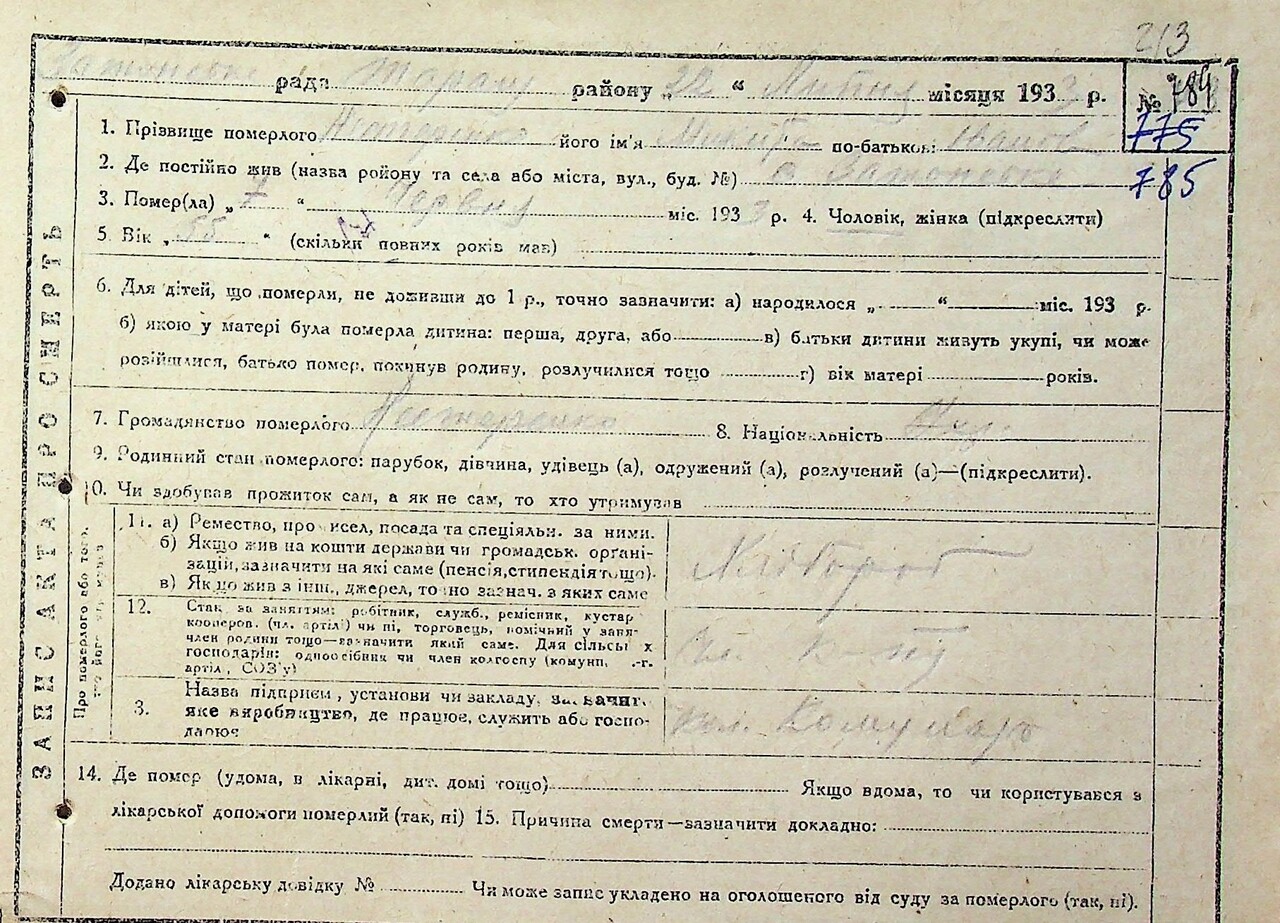 213
рада район „22“ Липня місяця 1933 р. № 784
775
785
1. Прізвище померлого його ім'я Микита по-батькові Іванов
2. Де постійно жив (назва району та села або міста, вул., буд. №) с.
3. Помер(ла) „7“ Червня міс. 1933 р. 4. Чоловік, жінка (підкреслити)
5. Вік „55“ (скільки повних років мав)
6. Для дітей, що померли, не доживши до 1 р., точно зазначити: а) народилося „ “ міс. 193 р.
б) якою у матері була померла дитина: перша, друга, або в) батьки дитини живуть укупі, чи може
розійшлися, батько помер, покинув родину, розлучилися тощо г) вік матері років.
7. Громадянство померлого 8. Національність Укр.
9. Родинний стан померлого: парубок, дівчина, удівець (а), одружений (а), розлучений (а)—(підкреслити).
10. Чи здобував прожиток сам, а як не сам, то хто утримував
ЗАПИС АКТА ПРО СМЕРТЬ
Про померлого або того,
11. а) Ремество, промисел, посада та спеціяльн. за ними.
б) Якщо жив на кошти держави чи громадськ. орґані-
зацій, зазначити на які саме (пенсія, стипендія тощо).
в) Якщо жив з інш. джерел, точно зазнач. з яких саме
Хлібороб
12. Стан за заняттям: робітник, служб., ремісник, кустар
кооперов. (чл. артілі) чи ні, торговець, помічний у заня-
член родини тощо—зазначити який саме. Для сільськ х
господарів: одноосібник чи член колгоспу (комуни, с.-г.
артіл., СОЗ'у)
13. Назва підприєм., установи чи закладу, зазначит.
яке виробництво, де працює, служить або госпо-
дарює
14. Де помер (удома, в лікарні, дит. домі тощо) Якщо вдома, то чи користувався з
лікарської допомоги померлий (так, ні) 15. Причина смерти—зазначити докладно:
Додано лікарську довідку № Чи може запис укладено на оголошеного від суду за померлого (так, ні).